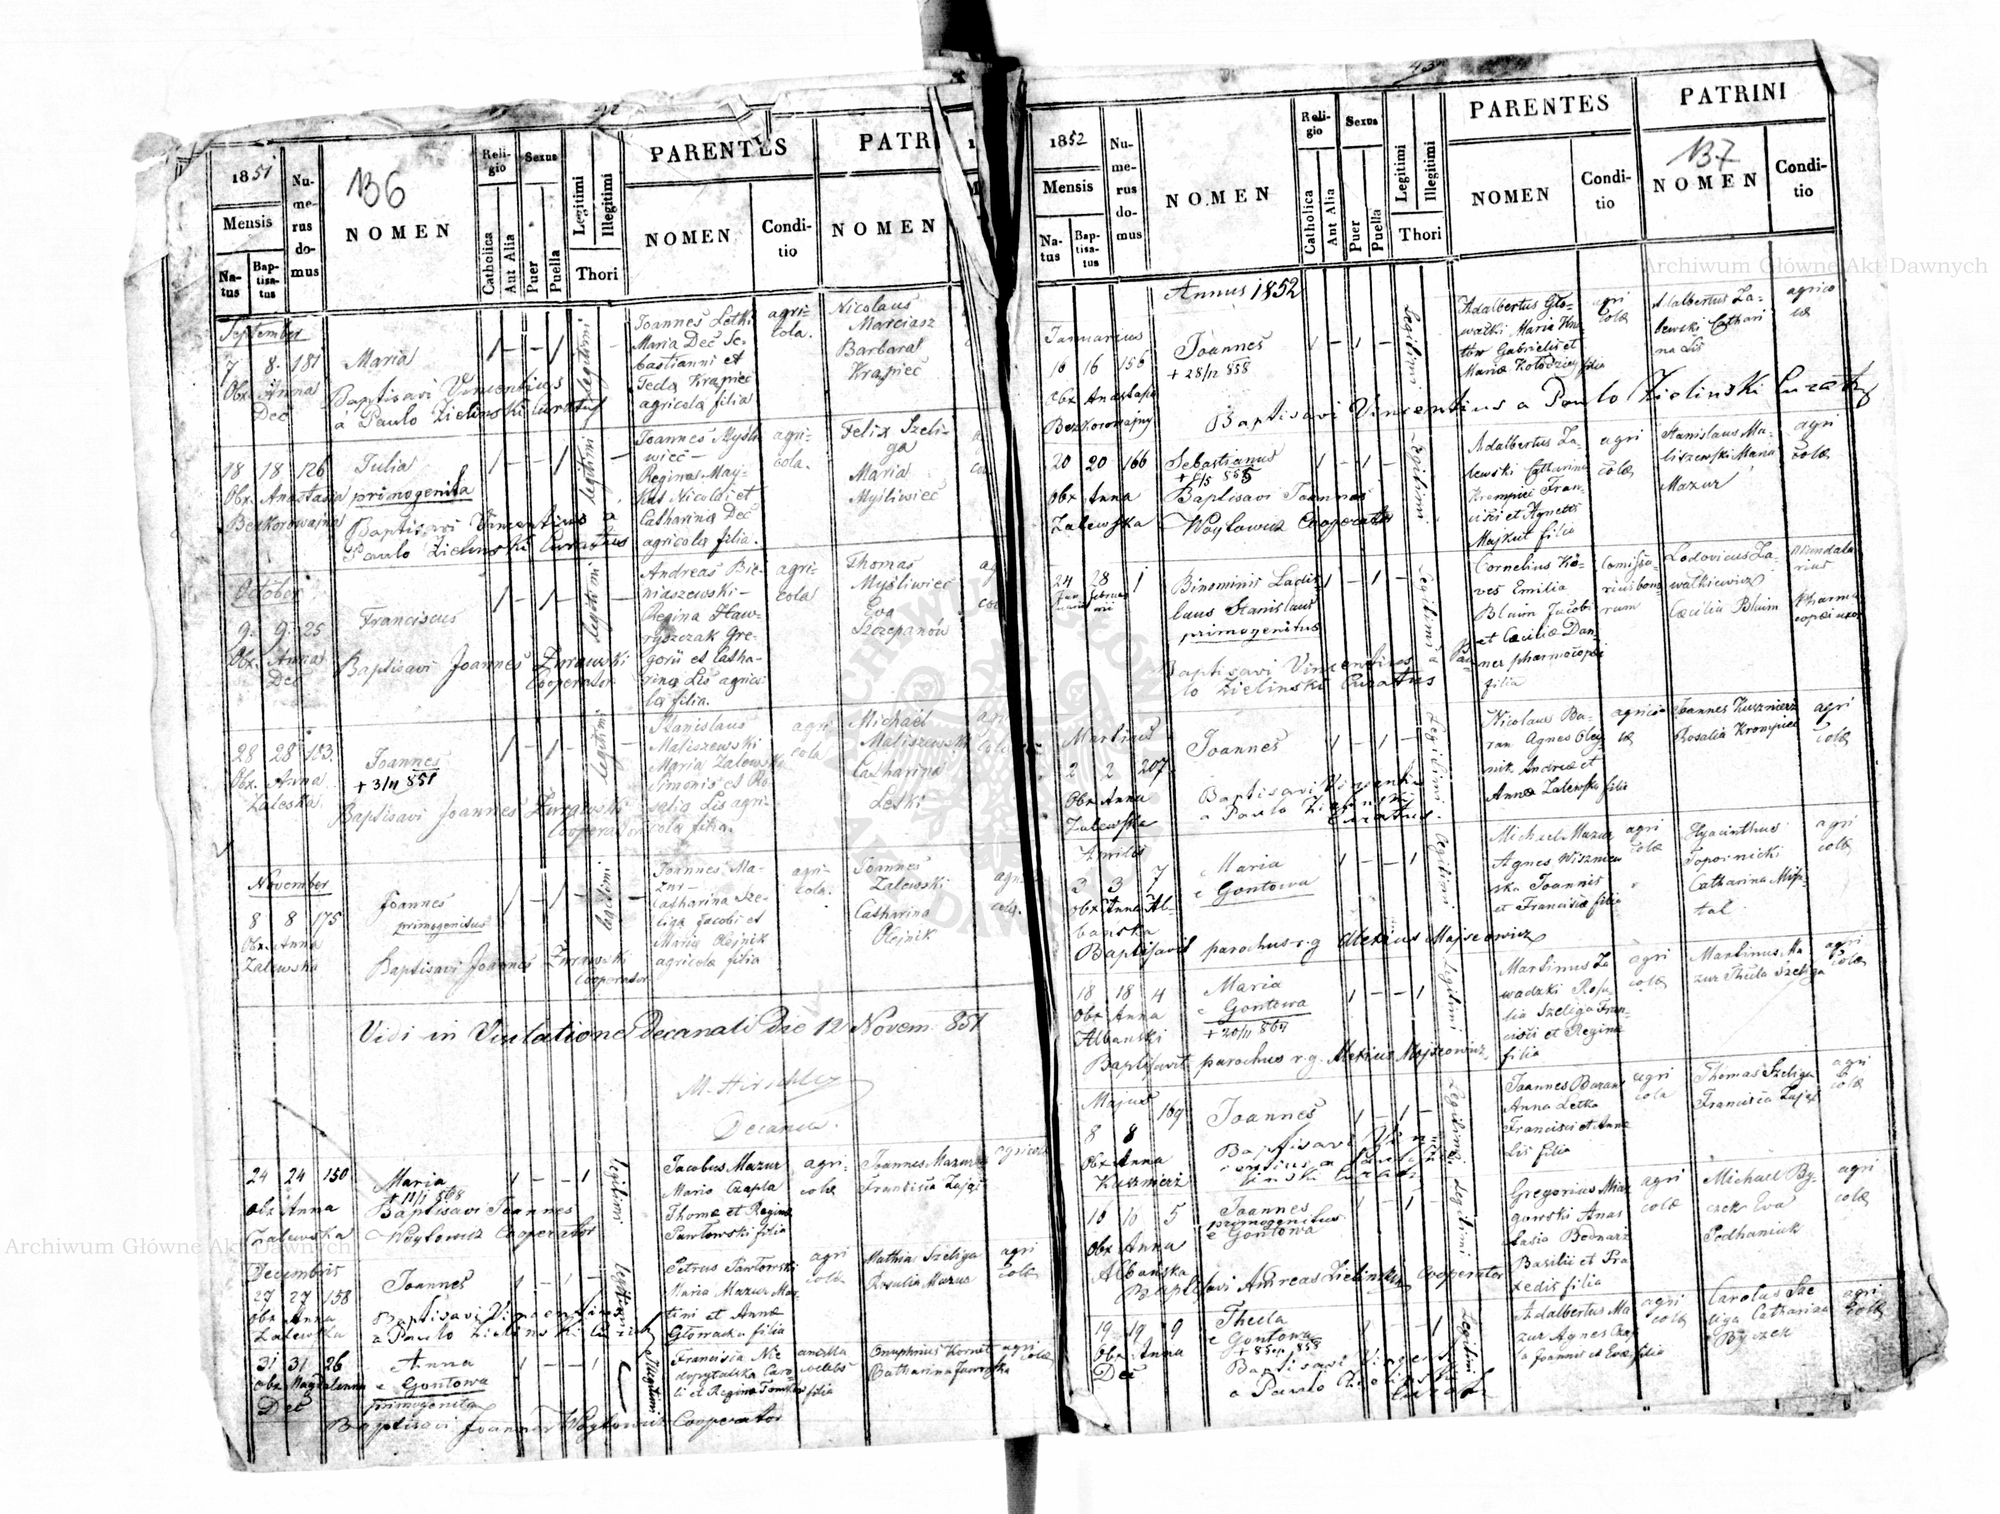 42
1851
Mensis
Na-
tus
Bap-
tisa-
tus
Nu-
me-
rus
do-
mus
136
NOMEN
Reli-
gio
Catholica
Aut Alia
Sexus
Puer
Puella
Legitimi
Illegitimi
Thori
PARENTES
NOMEN
Condi-
tio
PATRI
NOMEN
September
7 8. 181
Obx. Anna
Dec
Maria
Baptisavi Vincentius
a Paulo Zielinski Curatus
legitimi
Joannes Letki
Maria Dec Se-
bastianni et
Tecla Krapiec
agricola filia
agri-
cola.
Nicolaus
Marciasz
Barbara
Krapiec
18 18. 126
Obx. Anastasia
Bezkorowajna
Julia
primogenita
Baptisavi Vincentius a
Paulo Zielinski Curatus
legitimi
Joannes Myśli-
wiec
Regina May-
kut Nicolai et
Catharina Dec
agricola filia.
agri-
cola.
Felix Szeli-
ga
Maria
Myśliwiec
October
9. 9. 25
Obx. Anna
Dec
Franciscus
Baptisavi Joannes Żurawski
Cooperator
legitimi
Andreas Bie-
niaszewski
Regina Haw-
ryszczak Gre-
gorii et Catha-
rina Lis agrico-
la filia.
agri-
cola
Thomas
Myśliwiec
Eva
Szczepanów
28 28 183.
Obx. Anna
Zaleska
Joannes
+ 3/11 851
Baptisavi Joannes Żurawski
Cooperator
legitimi
Stanislaus
Maliszewski
Maria Zalewska
Simonis et Ro-
salia Lis agri-
cola filia.
agri
cola
Michael
Maliszewski
Catharina
Letki
November
8 8 175
Obx. Anna
Zalewska
Joannes
primogenitus
Baptisavi Joannes Żurawski
Cooperator
legitimi
Joannes Ma-
zur
Catharina Sze-
liga Jacobi et
Maria Olejnik
agricola filia
agri-
cola.
Joannes
Zalewski
Catharina
Olejnik
Vidi in Visitatione Decanali Die 12 Novem. 851
M. Hirschler
Decanus.
24 24 150
Obx Anna
Zalewska
Maria
+ 11/1 868
Baptisavi Joannes
Woytowicz Cooperator
legitimi
Jacobus Mazur
Maria Czapla
Thoma et Regina
Pawłowski filia
agri-
cola
Joannes Mazur
Francisca Zając
agricola
Decembris
27 27 158
Obx Anna
Zalewska
Joannes
Baptisavi Vincentius
a Paulo Zielinski Curatus
legitimi
Petrus Pawłowski
Maria Mazur Mar-
tini et Anna
Głowacka filia
agri
cola
Mathias Szeliga
Rosalia Mazur
agri
cola
31 31 26
Obx Magdalena
Dec
Anna
e Gontowa
primogenita
Baptisavi Joannes Woytowicz Cooperator
Illegitimi
Onuphrius Kornet
Catharina
agri
cola
43
1852
Mensis
Na-
tus
Bap-
tisa-
tus
Nu-
me-
rus
do-
mus
NOMEN
Reli-
gio
Catholica
Aut Alia
Sexus
Puer
Puella
Legitimi
Illegitimi
Thori
PARENTES
NOMEN
Condi-
tio
PATRINI
137
NOMEN
Condi-
tio
Annus 1852
Januarius
16 16 156
Obx Anastasia
Bezkorowajny
Joannes
+ 28/12 858
Baptisavi Vincentius a Paulo Zielinski Curatus
Legitimi
Adalbertus Gło-
watki Maria
Gabrielis et
Maria Kołodziey filia
agri
cola
Adalbertus Za-
lewski Cathari
na Lis
agrico
la
20 20 166
Obx Anna
Zalewska
Sebastianus
Baptisavi Joannes
Woytowicz Cooperator
Legitimi
Adalbertus Za-
lewski Catharina
Krempiec Fran-
cisci et Agnetis
Majkut filia
agri
cola
Stanislaus Ma-
liszewski Maria
Mazur
agri
cola
24 28 1
Binominis Ladis-
laus Stanislaus
primogenitus
Baptisavi Vincentius a Pau-
lo Zielinski Curatus
Legitimi
Cornelius Kö-
ves Emilia
Bluim Jacobi
et Cæcilia Dan-
ner pharmacopei
filia
Comissa-
rius bono
rum
Lodovicus Za-
watkiewicz
Cæcilia Bluim
Mandata
rius
Pharma
copei uxor
Martius
2 2 207
Obx Anna
Zalewska
Joannes
Baptisavi Vincentius
a Paulo Zielinski
Curatus.
Legitimi
Nicolaus Ba-
ran Agnes Oley-
nik Andrea et
Anna Zalewska filia
agrico-
la
Joannes Kuzmierz
Rosalia Krempiec
agri
cola
Aprilis
2 3 7
Obx Anna Al-
banska
Maria
e Gontowa
Baptisavit parochus r.g Alexius Mojseowicz
Legitimi
Michael Mazur
Agnes Wisznie
ska Joannis
et Francisca filia
agri
cola
Hyacinthus
Topornicki
Catharina Misz-
tal
agri
cola
18 18 4
Obx Anna
Albanski
Maria
e Gontowa
+ 20/11 864
Baptisavit parochus r.g. Alexius Mojseowicz
Legitimi
Martinus Za
wadzki Rosa-
lia Szeliga Fran-
cisci et Regina
filia
agri
cola
Martinus Ma
zur Thecla Szeliga
agri
cola
Majus
8 8 169
Obx Anna
Kuzmierz
Joannes
Baptisavi Vin-
centius a Paulo Zie-
linski Curatus
Legitimi
Joannes Baran
Anna Letka
Francisci et Anna
Lis filia
agri
cola
Thomas Szeliga
Francisca Zając
agri
cola
10 10 5
Obx Anna
Albańska
Joannes
primogenitus
e Gontowa
Baptisavi Andreas Zielinski Cooperator
Legitimi
Gregorius Miaz-
gowski Anas
tasia Bednarz
Basilii et Pra
xedis filia
agri
cola
Michael By-
czek Eva
Podhaniuk
agri
cola
19 19 9
Obx Anna
Dec
Thecla
e Gontowa
Baptisavi Vincenti
a Paulo Zielinski
Curat
Legitimi
Adalbertus Ma
zur Agnes Czap
la Joannis et Eva filia
agri
cola
Carolus Sze
liga Catharina
Byczek
agri
cola
Archiwum Główne Akt Dawnych
Archiwum Główne Akt Dawnych
ARCHIWUM GŁÓWNE AKT DAWNYCH